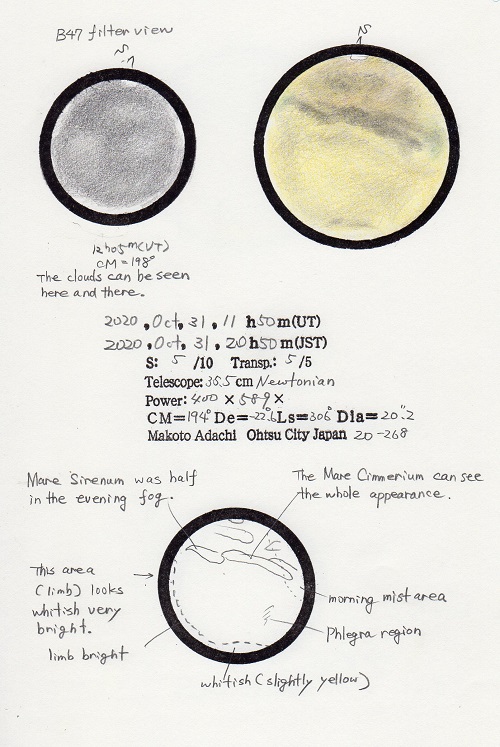 B47 filter view
S
S
12h05m(UT)
CM=198°
The clouds can be seen
here and there.
2020, Oct, 31, 11 h50m(UT)
2020, Oct, 31, 20h50m(JST)
S: 5 /10 Transp.: 5/5
Telescope: 35.5 cm Newtonian
Power: 400 × 589×
CM=194° De=-22.6 Ls=306° Dia=20".2
Makoto Adachi Ohtsu City Japan 20-268
Mare Sirenum was half
in the evening fog.
The Mare Cimmerium can see
the whole appearance.
This area
(limb) looks
whitish very
bright.
limb bright
morning mist area
Phlegra region
whitish (slightly yellow)